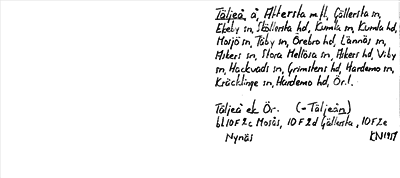 Täljeå å, Attersta m.fl., Gällersta sn,
Ekeby sn, Sköllersta hd, Kumla sn, Kumla hd,
Mosjö sn, Täby sn, Örebro hd, Lännäs sn,
Askers sn, Stora Mellösa sn, Askers hd, Viby
sn, Hackvads sn, Grimstens hd, Hardemo sn,
Kräcklinge sn, Hardemo hd, Ör.l.
Täljeå ek Ör. (=Täljeån)
bl 10F2c Mosås, 10F2d Gällersta, 10F2e
Nynäs KN1957